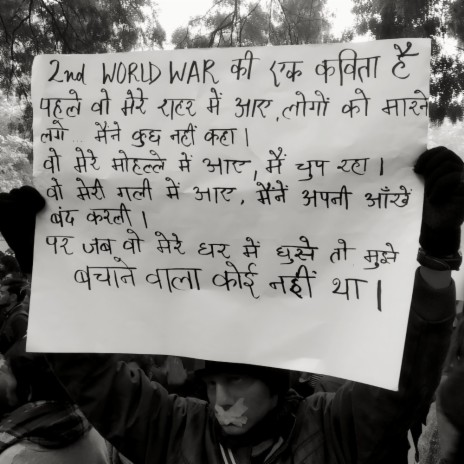 2nd WORLD WAR की एक कविता है
पहले वो मेरे शहर में आए, लोगों को मारने
लगे ... मैंने कुछ नहीं कहा।
वो मेरे मोहल्ले में आए, मैं चुप रहा।
वो मेरी गली में आए, मैंनें अपनी आँखें
बंद करली।
पर जब वो मेरे घर में घुसे तो मुझे
बचाने वाला कोई नहीं था।